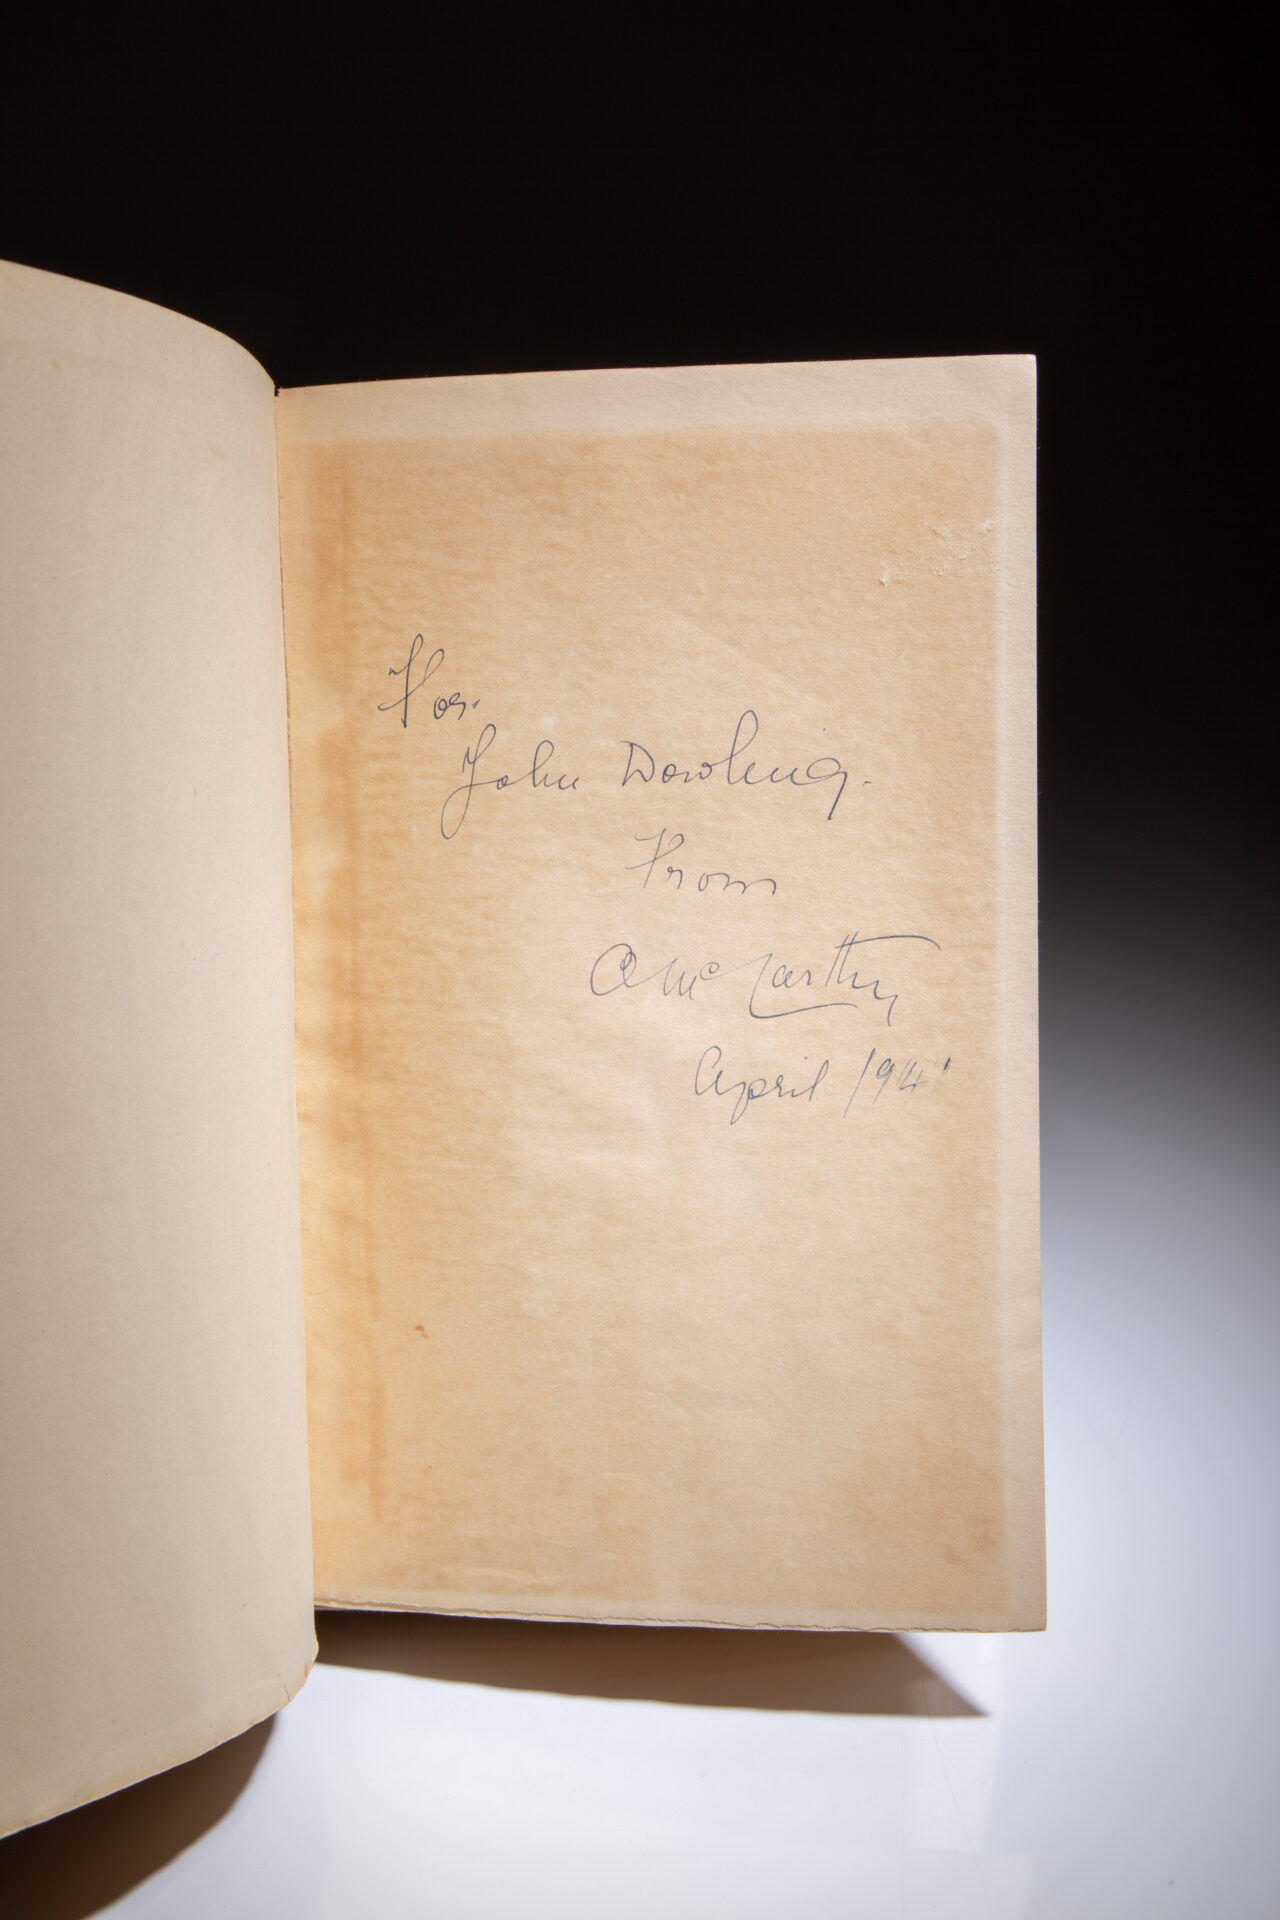 For.
John Dowling.
From
A Mc Carthy
April 1941